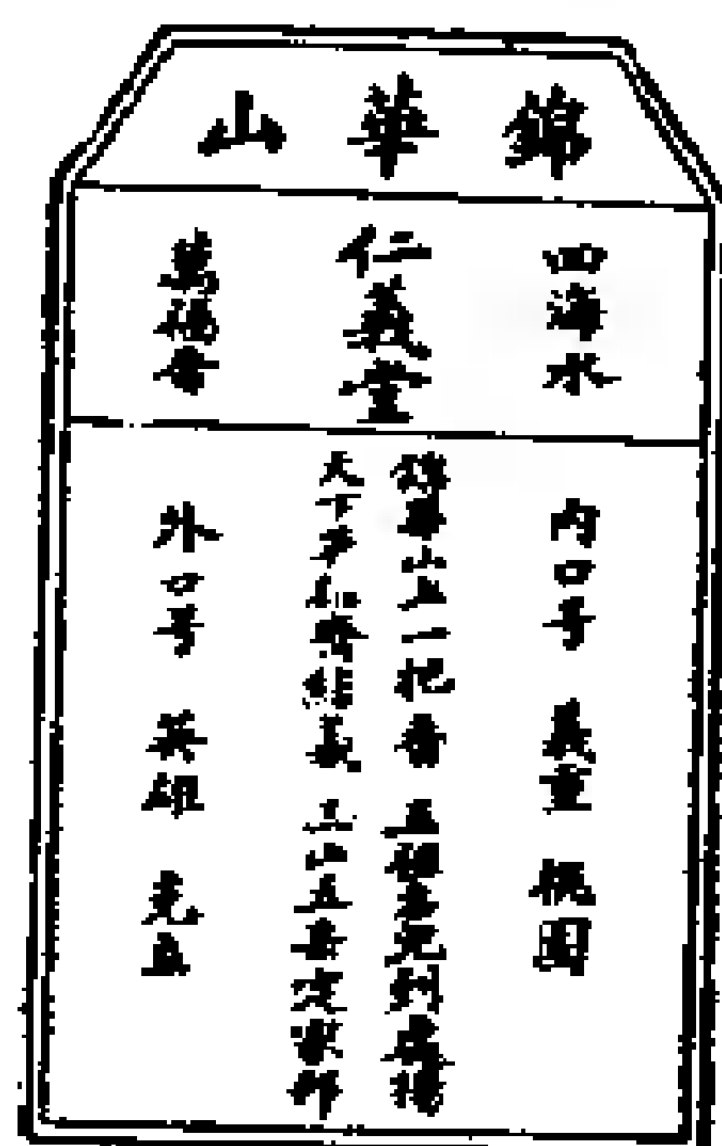 錦華山
四海水
仁義堂
萬福香
內口号 義重 桃園
錦華山上一把香 五祖兒到處揚
天下齊結義 三山五岳定家邦
外口号 英雄 克立